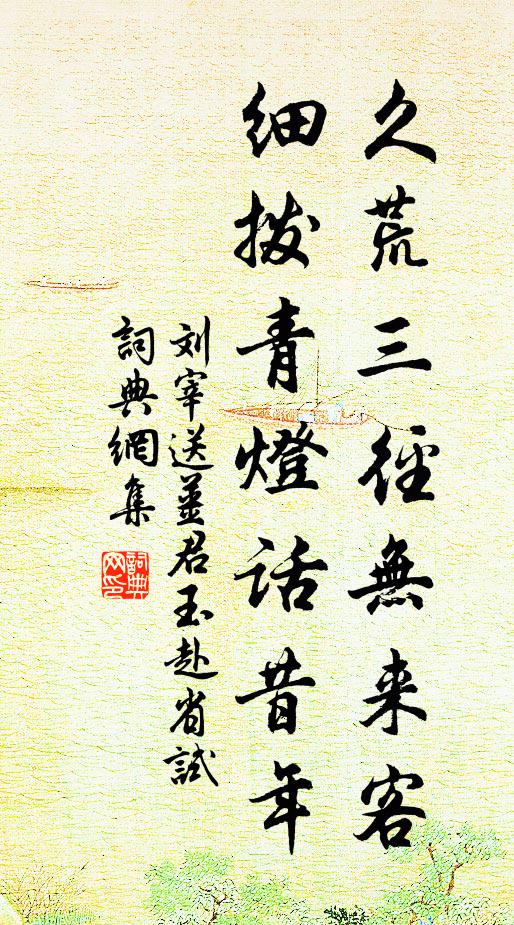 久荒三徑無来客
細撥青燈話昔年
刘宰送姜君玉赴省試
詞典網集
詞典网印